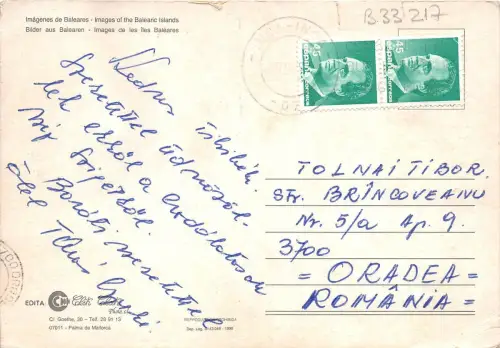 Imágenes de Baleares - Images of the Balearic Islands
Bilder aus Balearen - Images de les Iles Baléares
B33/217
45
España
correos
45
España
correos
Kedves Tibikék!
Szeretettel üdvözöl-
lek erről a csodálatos
szigetről.
Baráti szeretettel
ölel
TOLNAI TIBOR.
Str. BRÎNCOVEANU
Nr. 5/a Ap. 9.
3700
= ORADEA =
ROMÂNIA =
EDITA
C/ Goethe, 26 - Telf. 28 91 13
07011 - Palma de Mallorca